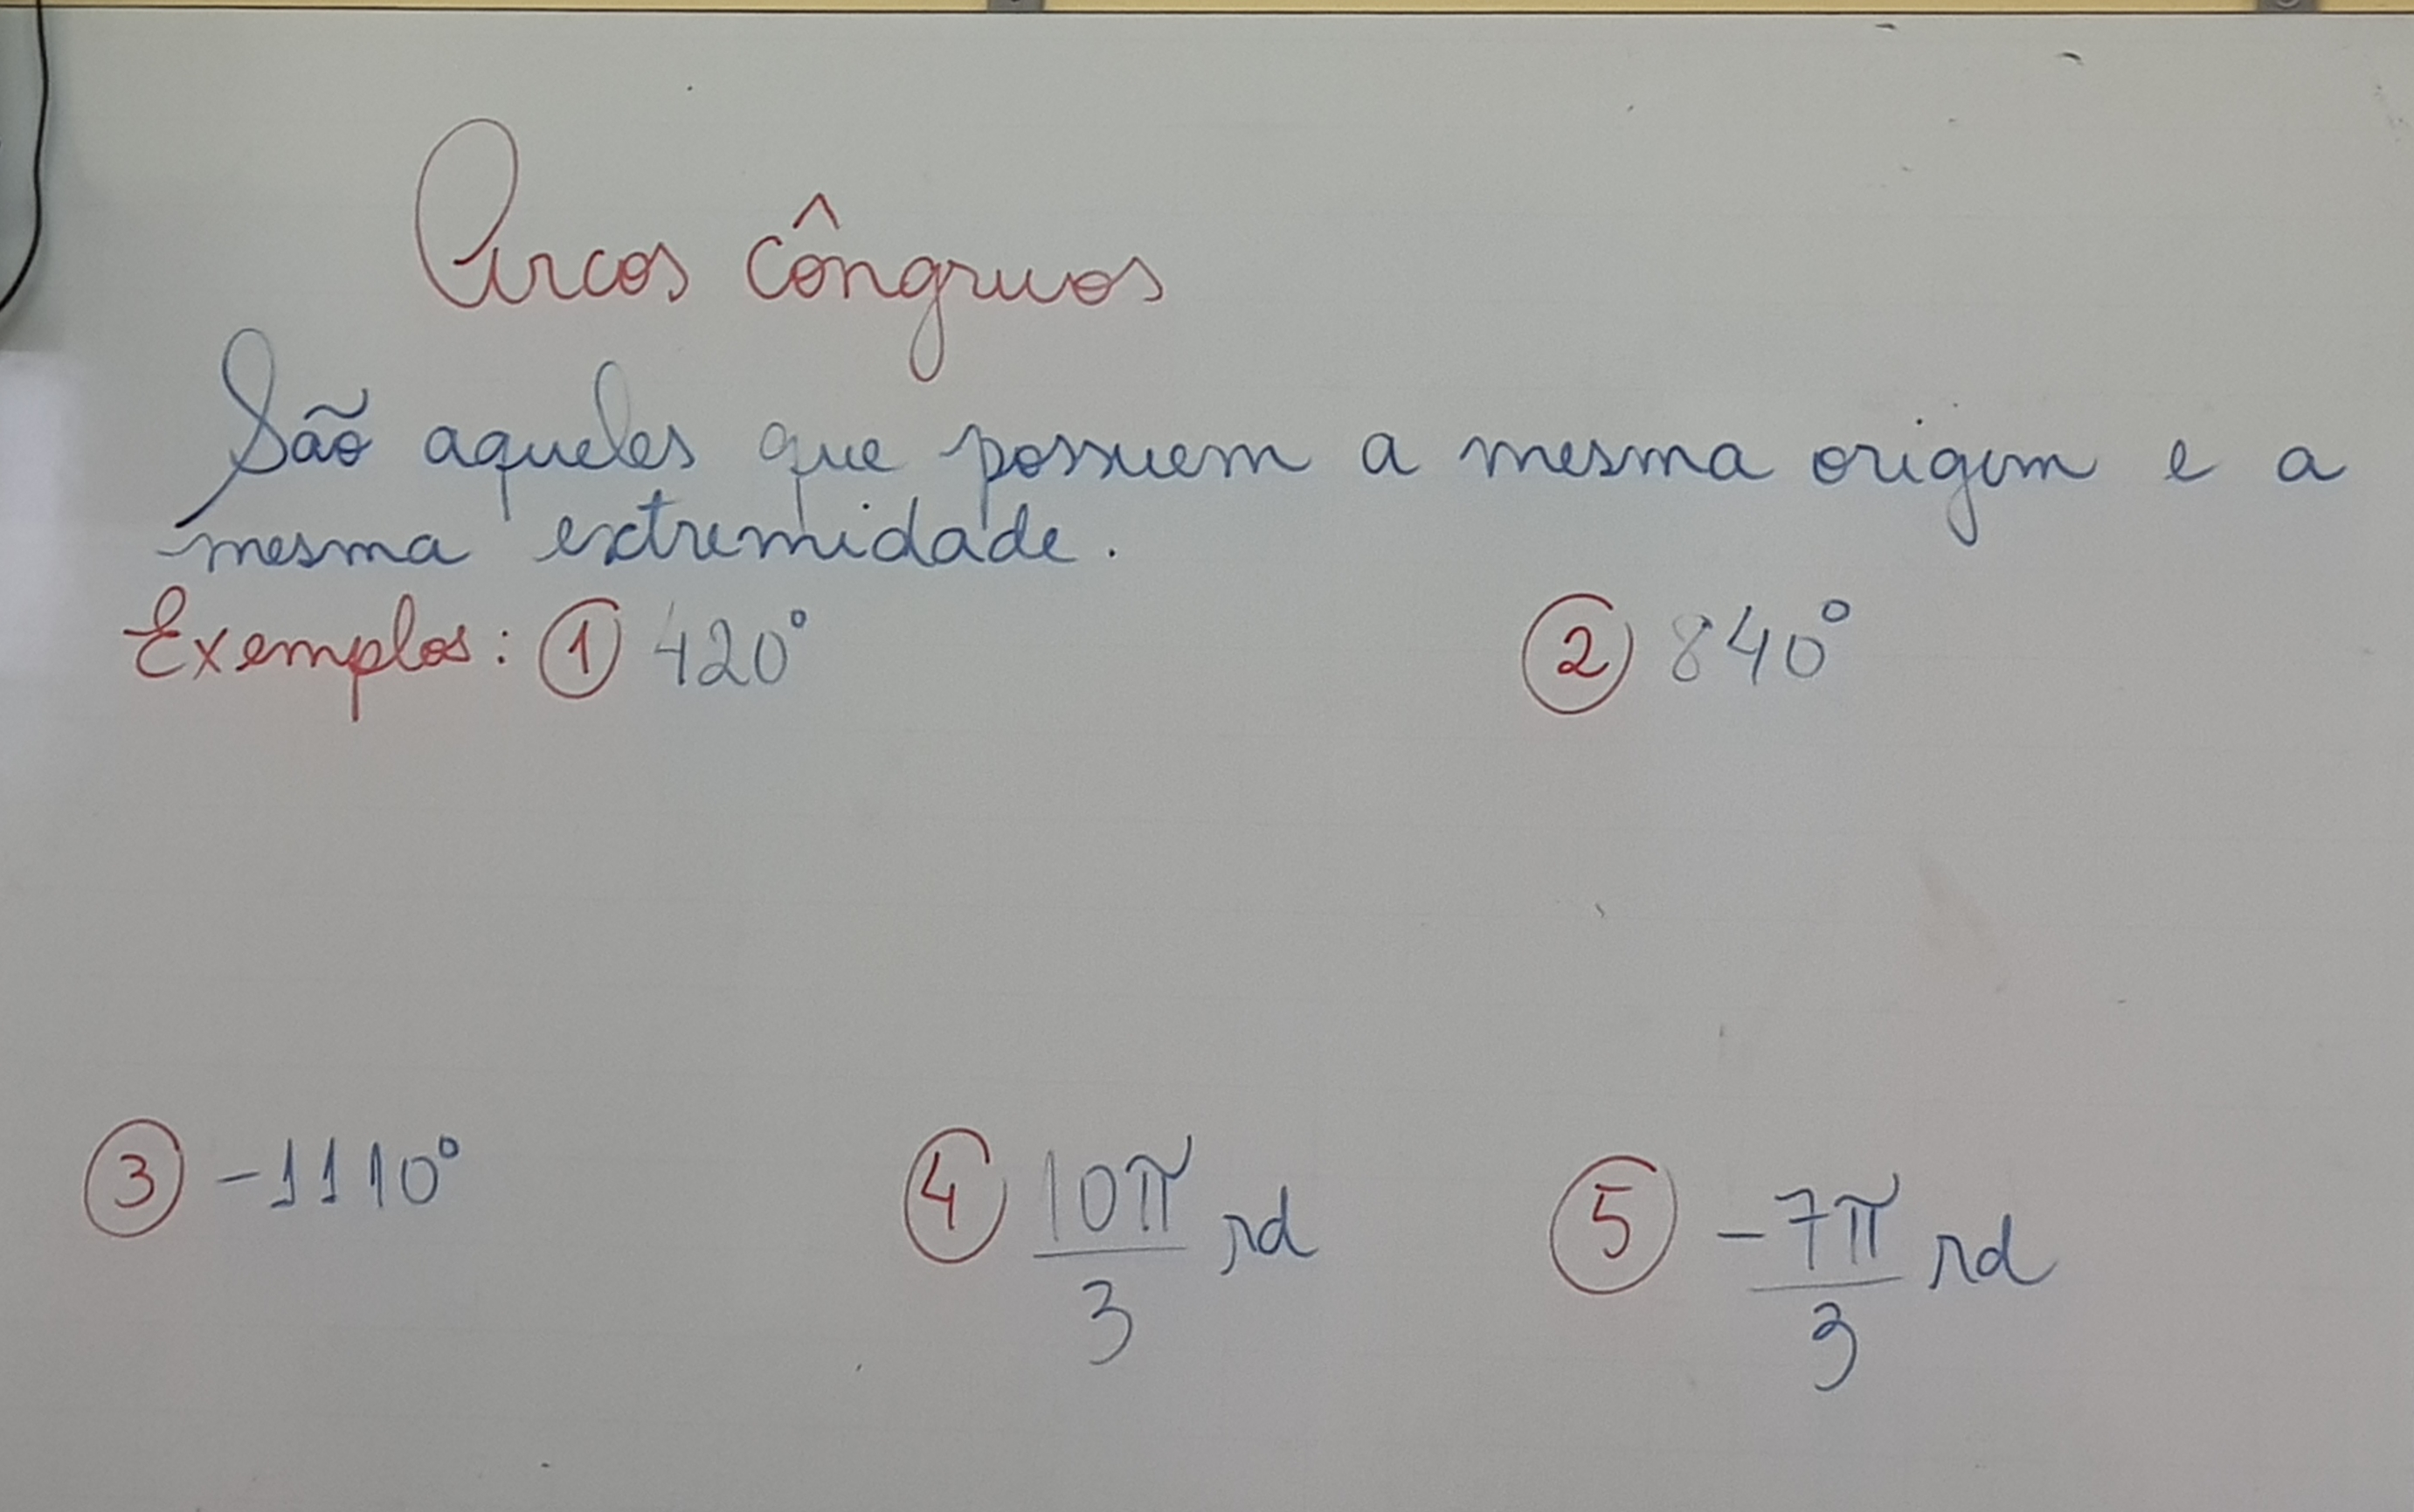 Arcos côngruos
São aqueles que possuem a mesma origem e a
mesma extremidade.
Exemplos: ① 420° ② 840°
③ -1110° ④ 10π/3 rd ⑤ -7π/3 rd